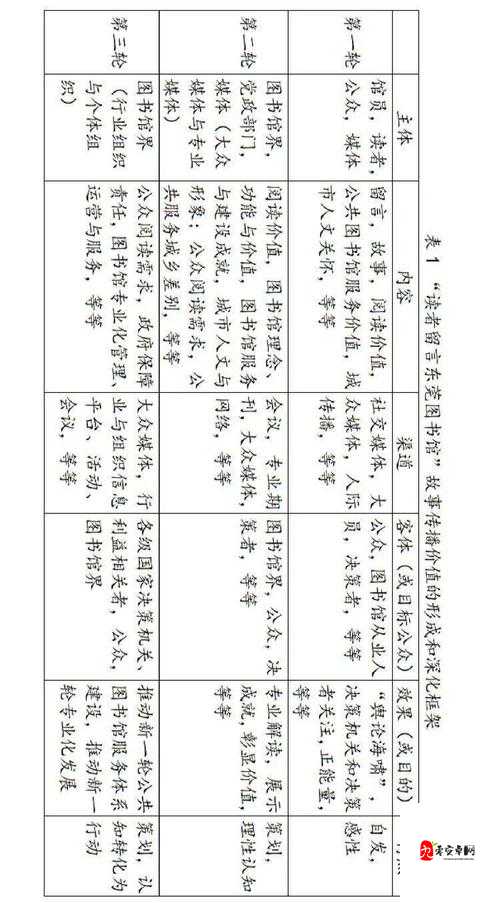 表 1 “读者留言东莞图书馆”故事传播价值的形成和深化框架
主体
内容
渠道
客体（或目标公众）
效果（或目的）
第一轮
馆员，读者，
公众，媒体
留言，故事，阅读价值，
公共图书馆服务价值，城
市人文关怀，等等
社交媒体，大
众媒体，人际
传播，等等
公众，图书馆从业人
员，决策者，等等
“舆论海啸”，
决策机关和决策
者关注，正能量，
等等
自发，
感性
第二轮
图书馆界，
党政部门，
媒体（大众
媒体与专业
媒体）
阅读价值，图书馆理念、
功能与价值，图书馆服务
与建设成就，城市人文与
形象；公众阅读需求，公
共服务城乡差别，等等
会议，专业期
刊，大众媒体，
网络，等等
图书馆界，公众，决
策者，等等
专业解读，展示
成就，彰显价值，
等等
策划，
理性认知
第三轮
图书馆界
（行业组织
与个体组
织）
公众阅读需求，政府保障
责任，图书馆专业化管理、
运营与服务，等等
大众媒体，行
业与组织信息
平台、活动、
会议，等等
各级国家决策机关、
利益相关者，公众，
图书馆界
推动新一轮公共
图书馆服务体系
建设，推动新一
轮专业化发展
策划，认
知转化为
行动